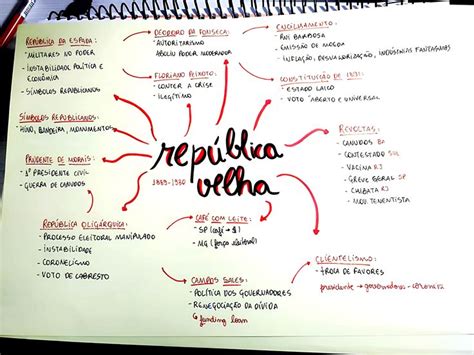 república velha
1889-1930
REPÚBLICA DA ESPADA:
- MILITARES NO PODER
- INSTABILIDADE POLÍTICA E
ECONÔMICA
- SÍMBOLOS REPUBLICANOS
SÍMBOLOS REPUBLICANOS:
- HINO, BANDEIRA, MONUMENTOS
PRUDENTE DE MORAIS:
- 1º PRESIDENTE CIVIL
- GUERRA DE CANUDOS
REPÚBLICA OLIGÁRQUICA:
- PROCESSO ELEITORAL MANIPULADO
- INSTABILIDADE
- CORONELISMO
- VOTO DE CABRESTO
DEODORO DA FONSECA:
- AUTORITARISMO
ABOLIU PODER MODERADOR
FLORIANO PEIXOTO:
- CONTER A CRISE
- ILEGÍTIMO
CAFÉ COM LEITE:
- SP (café → $)
- MG (força eleitoral)
CAMPOS SALES:
- POLÍTICA DOS GOVERNADORES
- RENEGOCIAÇÃO DA DÍVIDA
↳ funding loan
ENCILHAMENTO:
- RUI BARBOSA
- EMISSÃO DE MOEDA
- INFLAÇÃO, DESVALORIZAÇÃO, INDÚSTRIAS FANTASMAS
CONSTITUIÇÃO DE 1891:
- ESTADO LAICO
- VOTO "ABERTO E UNIVERSAL"
REVOLTAS:
- CANUDOS BA
- CONTESTADO SUL
- VACINA RJ
- GREVE GERAL SP
- CHIBATA RJ
- MOV TENENTISTA
CLIENTELISMO:
- TROCA DE FAVORES
presidente → governadores → coronéis